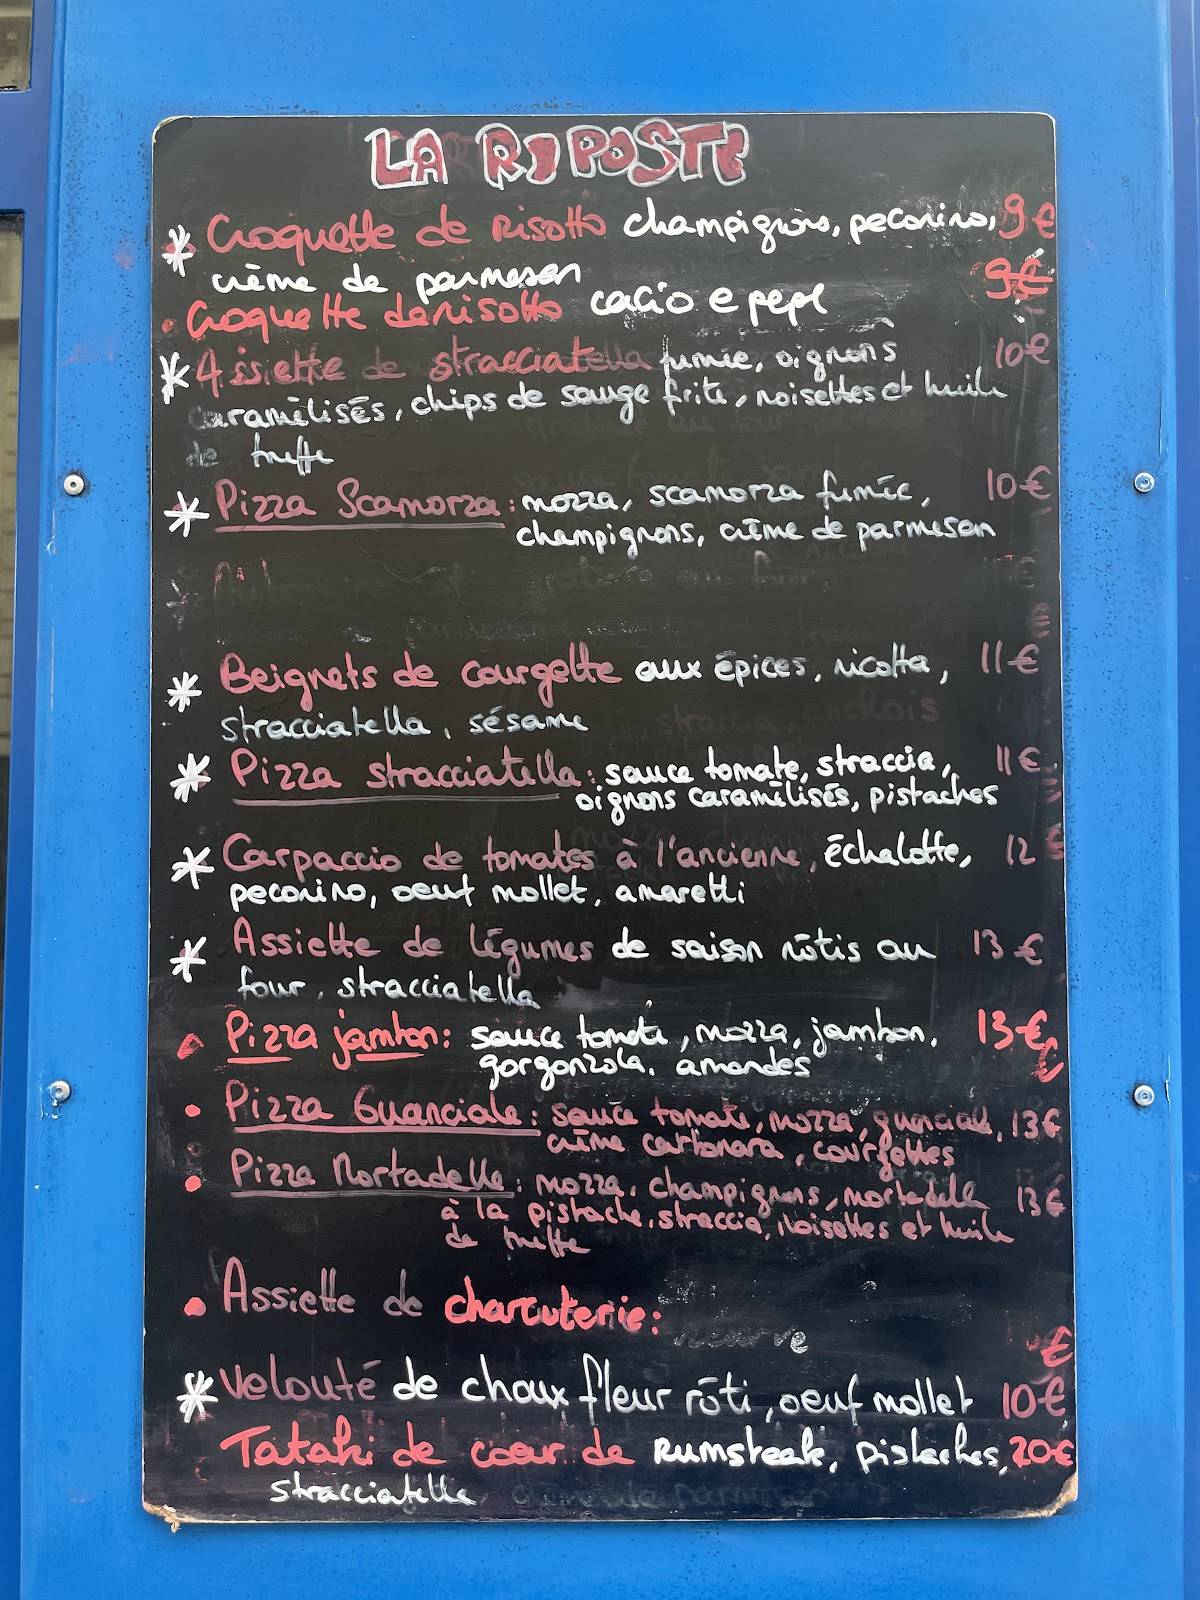 LA RIPOSTE
* Croquette de risotto champignons, pecorino, 9€
crème de parmesan
• Croquette de risotto cacio e pepe 9€
* Assiette de stracciatella fumée, oignons 10€
caramélisés, chips de sauge frite, noisettes et huile
de truffe
* Pizza Scamorza: mozza, scamorza fumée, 10€
champignons, crème de parmesan
* Beignets de courgette aux épices, ricotta, 11€
stracciatella, sésame
* Pizza stracciatella: sauce tomate, straccia, 11€
oignons caramélisés, pistaches
* Carpaccio de tomates à l'ancienne, échalotte, 12€
pecorino, oeuf mollet, amaretti
* Assiette de légumes de saison rôtis au 13€
four, stracciatella
• Pizza jambon: sauce tomate, mozza, jambon, 13€
gorgonzola, amandes
• Pizza Guanciale: sauce tomate, mozza, guanciale, 13€
crème carbonara, courgettes
• Pizza Mortadelle: mozza, champignons, mortadelle 13€
à la pistache, straccia, noisettes et huile
de truffe
• Assiette de charcuterie:
€
* Velouté de choux fleur rôti, oeuf mollet 10€
Tataki de coeur de Rumsteak, pistaches, 20€
stracciatella